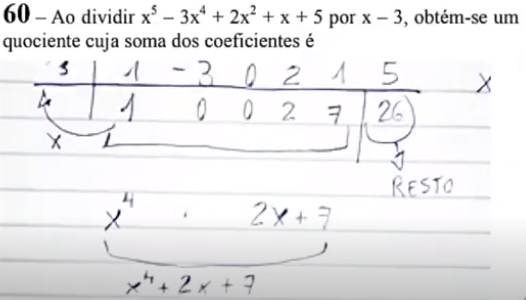 60 – Ao dividir x⁵ – 3x⁴ + 2x² + x + 5 por x – 3, obtém-se um
quociente cuja soma dos coeficientes é
3 | 1 -3 0 2 1 5 X
1 0 0 2 7 | 26
X
RESTO
x⁴ . 2x + 7
x⁴ + 2x + 7